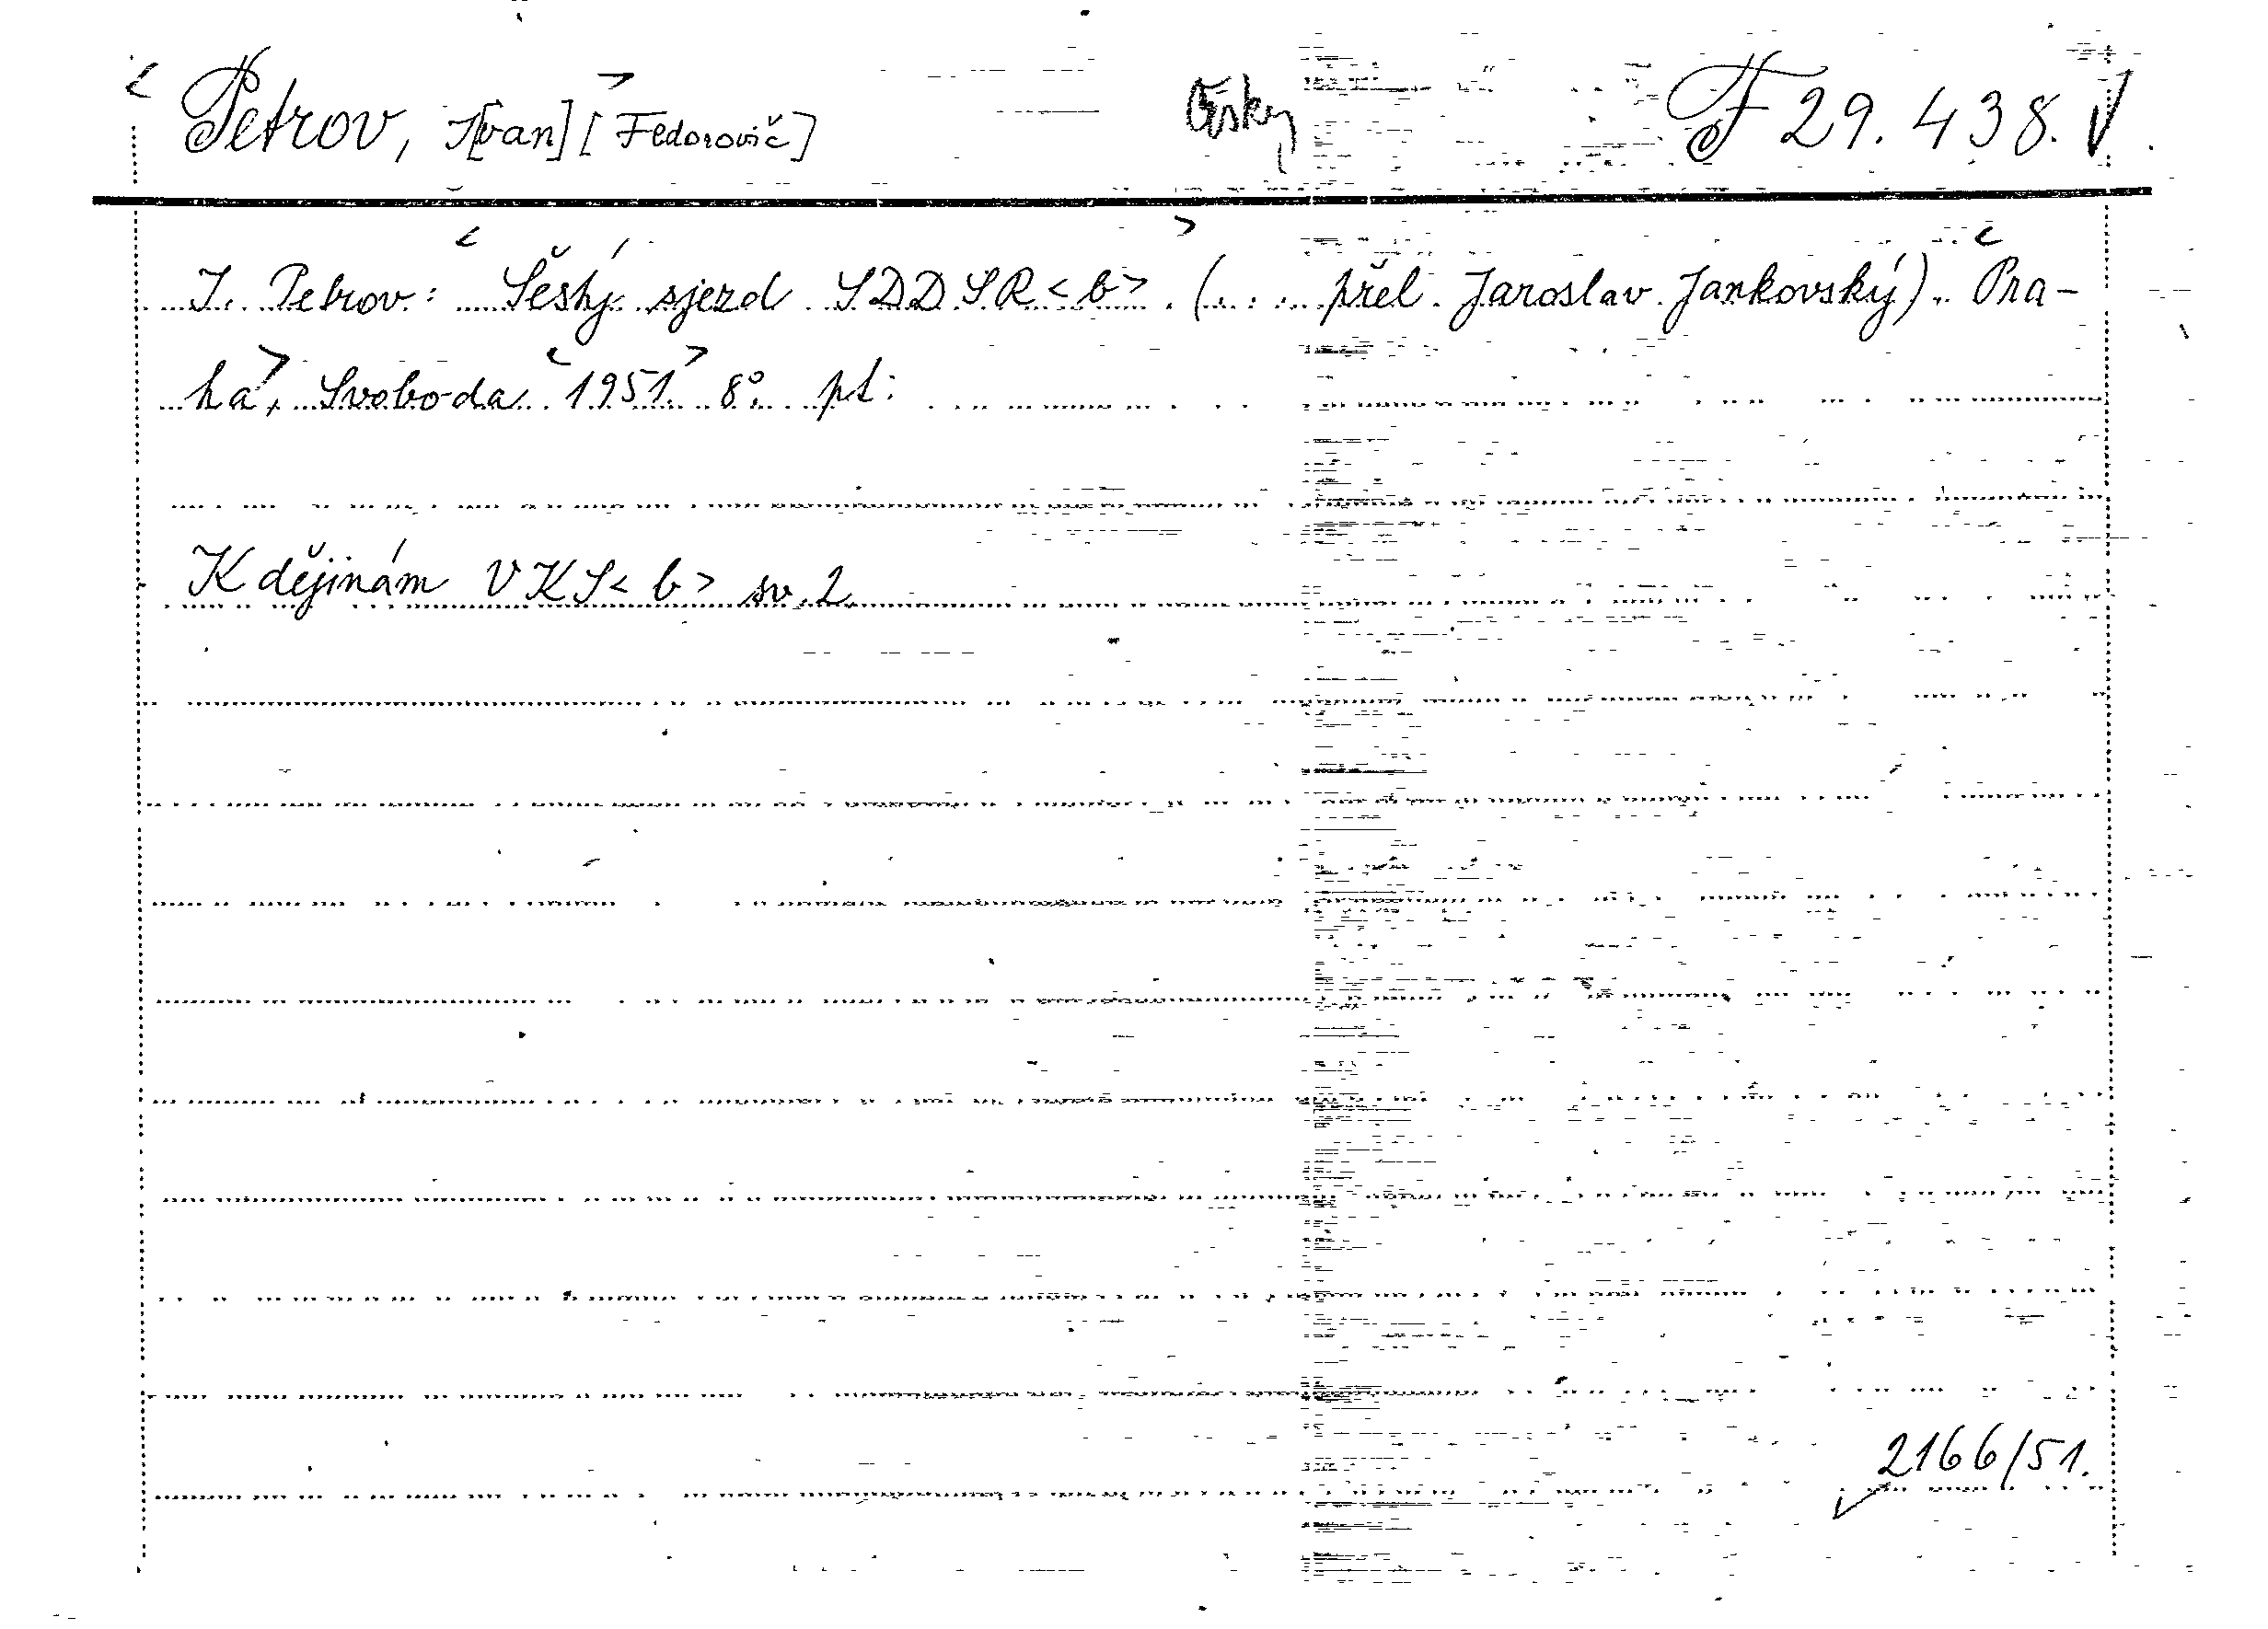 < Petrov, I[van] [Fedorovič] > Česky F 29.438. V
I. Petrov: < Šestý sjezd SDDSR<b> > (... přel. Jaroslav Jankovský). < Pra-
ha >, Svoboda < 1951. > 8°. pt:
K dějinám VKS<b> sv. 2.
2166/51.